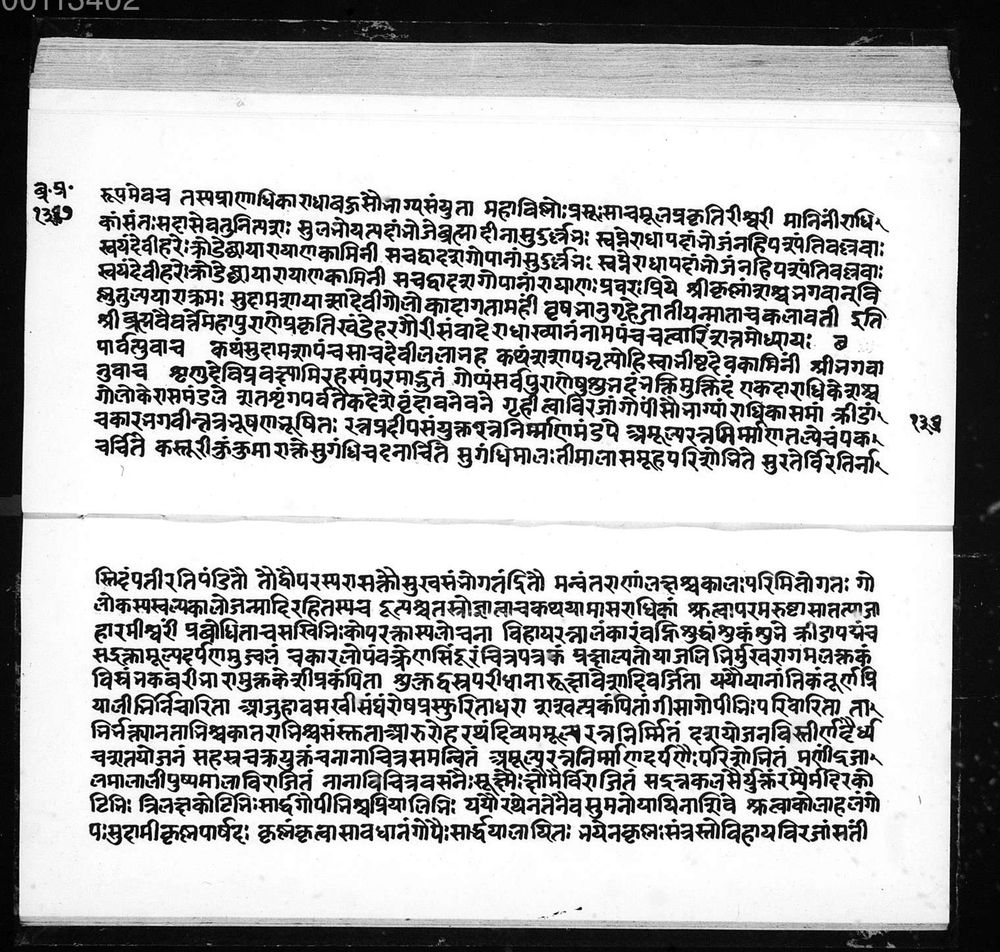 00113402
ब्र. प्र.
१३७
रूपमेवच तस्यप्राणाधिकाराधाबहुसौभाग्यसंयुता महाविष्णोःप्रसूःसाचमूलप्रकृतिरीश्वरी मानिनींराधि
कांसंतःसदासेवंतुनित्यशः सुलभोयत्पदांभोजंब्रह्मादीनांसुदुर्लभं स्वप्नेराधापदांभोजंनहिपश्यंतिवल्लवाः
स्वयंदेवीहरेःक्रोडेछायारायाणकामिनी सचद्वादशगोपानांसुदुर्लभं स्वप्नेराधापदांभोजंनहिपश्यंतिवल्लवाः
स्वयंदेवीहरेःक्रोडेछायारायाणकामिनी सचद्वादशगोपानांरायाणःप्रवरःप्रिये श्रीकृष्णांशश्चभगवान्वि
ष्णुतुल्यपराक्रमः सुदामशापात्सादेवीगोलोकादागतामहीं वृषभानुगृहेजातातीयन्माताचकलावती इति
श्रीब्रह्मवैवर्त्तेमहापुराणेप्रकृतिखंडेहरगौरीसंवादेराधाख्यानंनामपंचचत्वारिंशत्तमोध्यायः
पार्वत्युवाच कथंसुदामशापंचसाचदेवीललाभह कथंशशापभृत्योहिस्वाभीष्टदेवकामिनीं श्रीभगवा
नुवाच शृणुदेविप्रवक्ष्यामिरहस्यंपरमाद्भुतं गोप्यंसर्वपुराणेषुशुभदंभक्तिमुक्तिदं एकदाराधिकेशश्च
गोलोकेरासमंडले शतशृंगपर्वतैकदेशेवृंदावनेवने गृहीत्वाविरजांगोपींसौभाग्यांराधिकासमां क्रीडां
चकारभगवान्रत्नभूषणभूषितः रत्नप्रदीपसंयुक्तेरत्ननिर्म्माणमंडपे अमूल्यरत्ननिर्म्माणतल्पेचंपक
चर्चिते कस्तूरीकुंकुमाराक्तेसुगंधिचंदनार्चिते सुगंधिमालतीमालासमूहपरिशोभिते सुरतेर्विरतिर्ना
१३७
स्तिदंपतीरतिपंडितौ तौद्वौपरस्परासक्तौसुखसंभोगतंद्रितौ मन्वंतराणांलक्षश्चकालःपरिमितोगतः गो
लोकस्यस्वल्पकालोजन्मादिरहितस्यच दूत्यश्चतस्रोज्ञात्वाचकथयामासराधिकां श्रुत्वापरमरुष्टासातत्याज
हारमीश्वरी प्रबोधिताचसखिभिःकोपरक्तास्यलोचना विहायरत्नालंकारंवह्निशुद्धांशुकंशुभे क्रीडापद्मंच
सद्रत्नामूल्यदर्पणमुज्वलं चकारलोपंवस्त्रेणसिंदूरंचित्रपत्रकं प्रक्षाल्यतोयांजलिभिर्मुखरागमलक्तकं
विस्रंसकबरीभारामुक्तकेशीप्रकंपिता शुक्लवस्त्रपरीधानारूक्षावेशादिवर्जिता ययौयानांतिकंतूर्णंप्रि
यालीभिर्निवारिता आजुहावसखीसंघंरोषप्रस्फुरिताधरा शश्वत्प्रकंपितांगीसागोपीभिःपरिवारिता ता
भिर्भक्त्यानताभिश्चकातराभिश्चसंस्तुताआरुरोहरथंदिव्यममूल्यरत्ननिर्मितं दशयोजनविस्तीर्णंदैर्घ्ये
चशतयोजनं सहस्रचक्रयुक्तंचनानाचित्रसमन्वितं अमूल्यरत्ननिर्म्माणदर्पणैःपरिशोभितं मणींद्रजा
लमालालीपुष्पमालाविराजितं नानाविचित्रवसनैःसूक्ष्मैःक्षौमैर्विराजितं सद्रत्नकलसैर्युक्तंरम्यैर्मंदिरको
टिभिः त्रिलक्षकोटिभिःसार्द्धंगोपीभिश्चप्रियालिभिः ययौरथेनतेनैवसुमनोयायिनाशिवे श्रुत्वाकोलाहलंगो
पःसुदामाकृष्णपार्षदः कृष्णंकृत्वासावधानंगोपैःसार्द्धंपलायितः भयेनकृष्णःसंत्रस्तोविहायविरजांसतीं